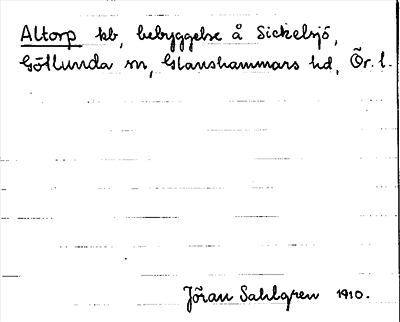 Altorp kb, bebyggelse å Sickelsjö,
Götlunda sn, Glanshammars hd, Ör. l.
Jöran Sahlgren 1910.